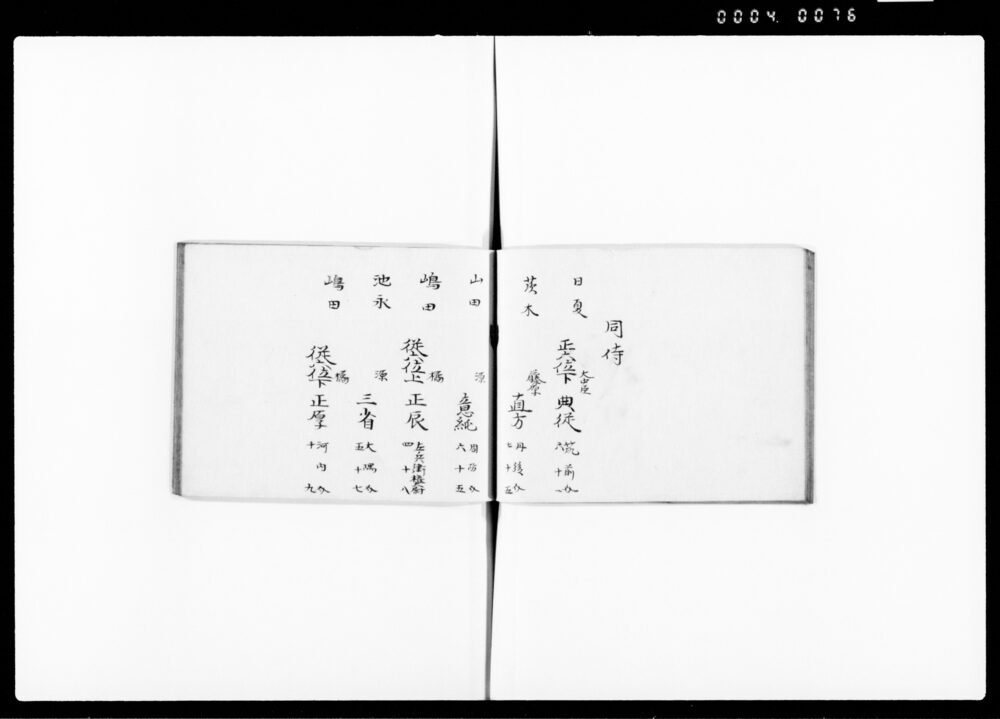 0004 0076
同侍
日夏
正六位下
大中臣
典従
筑前介
六十一
茂木
藤原
直方
丹後介
七十五
山田
源
意純
周防介
六十五
嶋田
従六位上
橘
正辰
左兵衛権少尉
四十八
池永
源
三省
大隅介
五十七
嶋田
従六位下
橘
正厚
河内介
十九